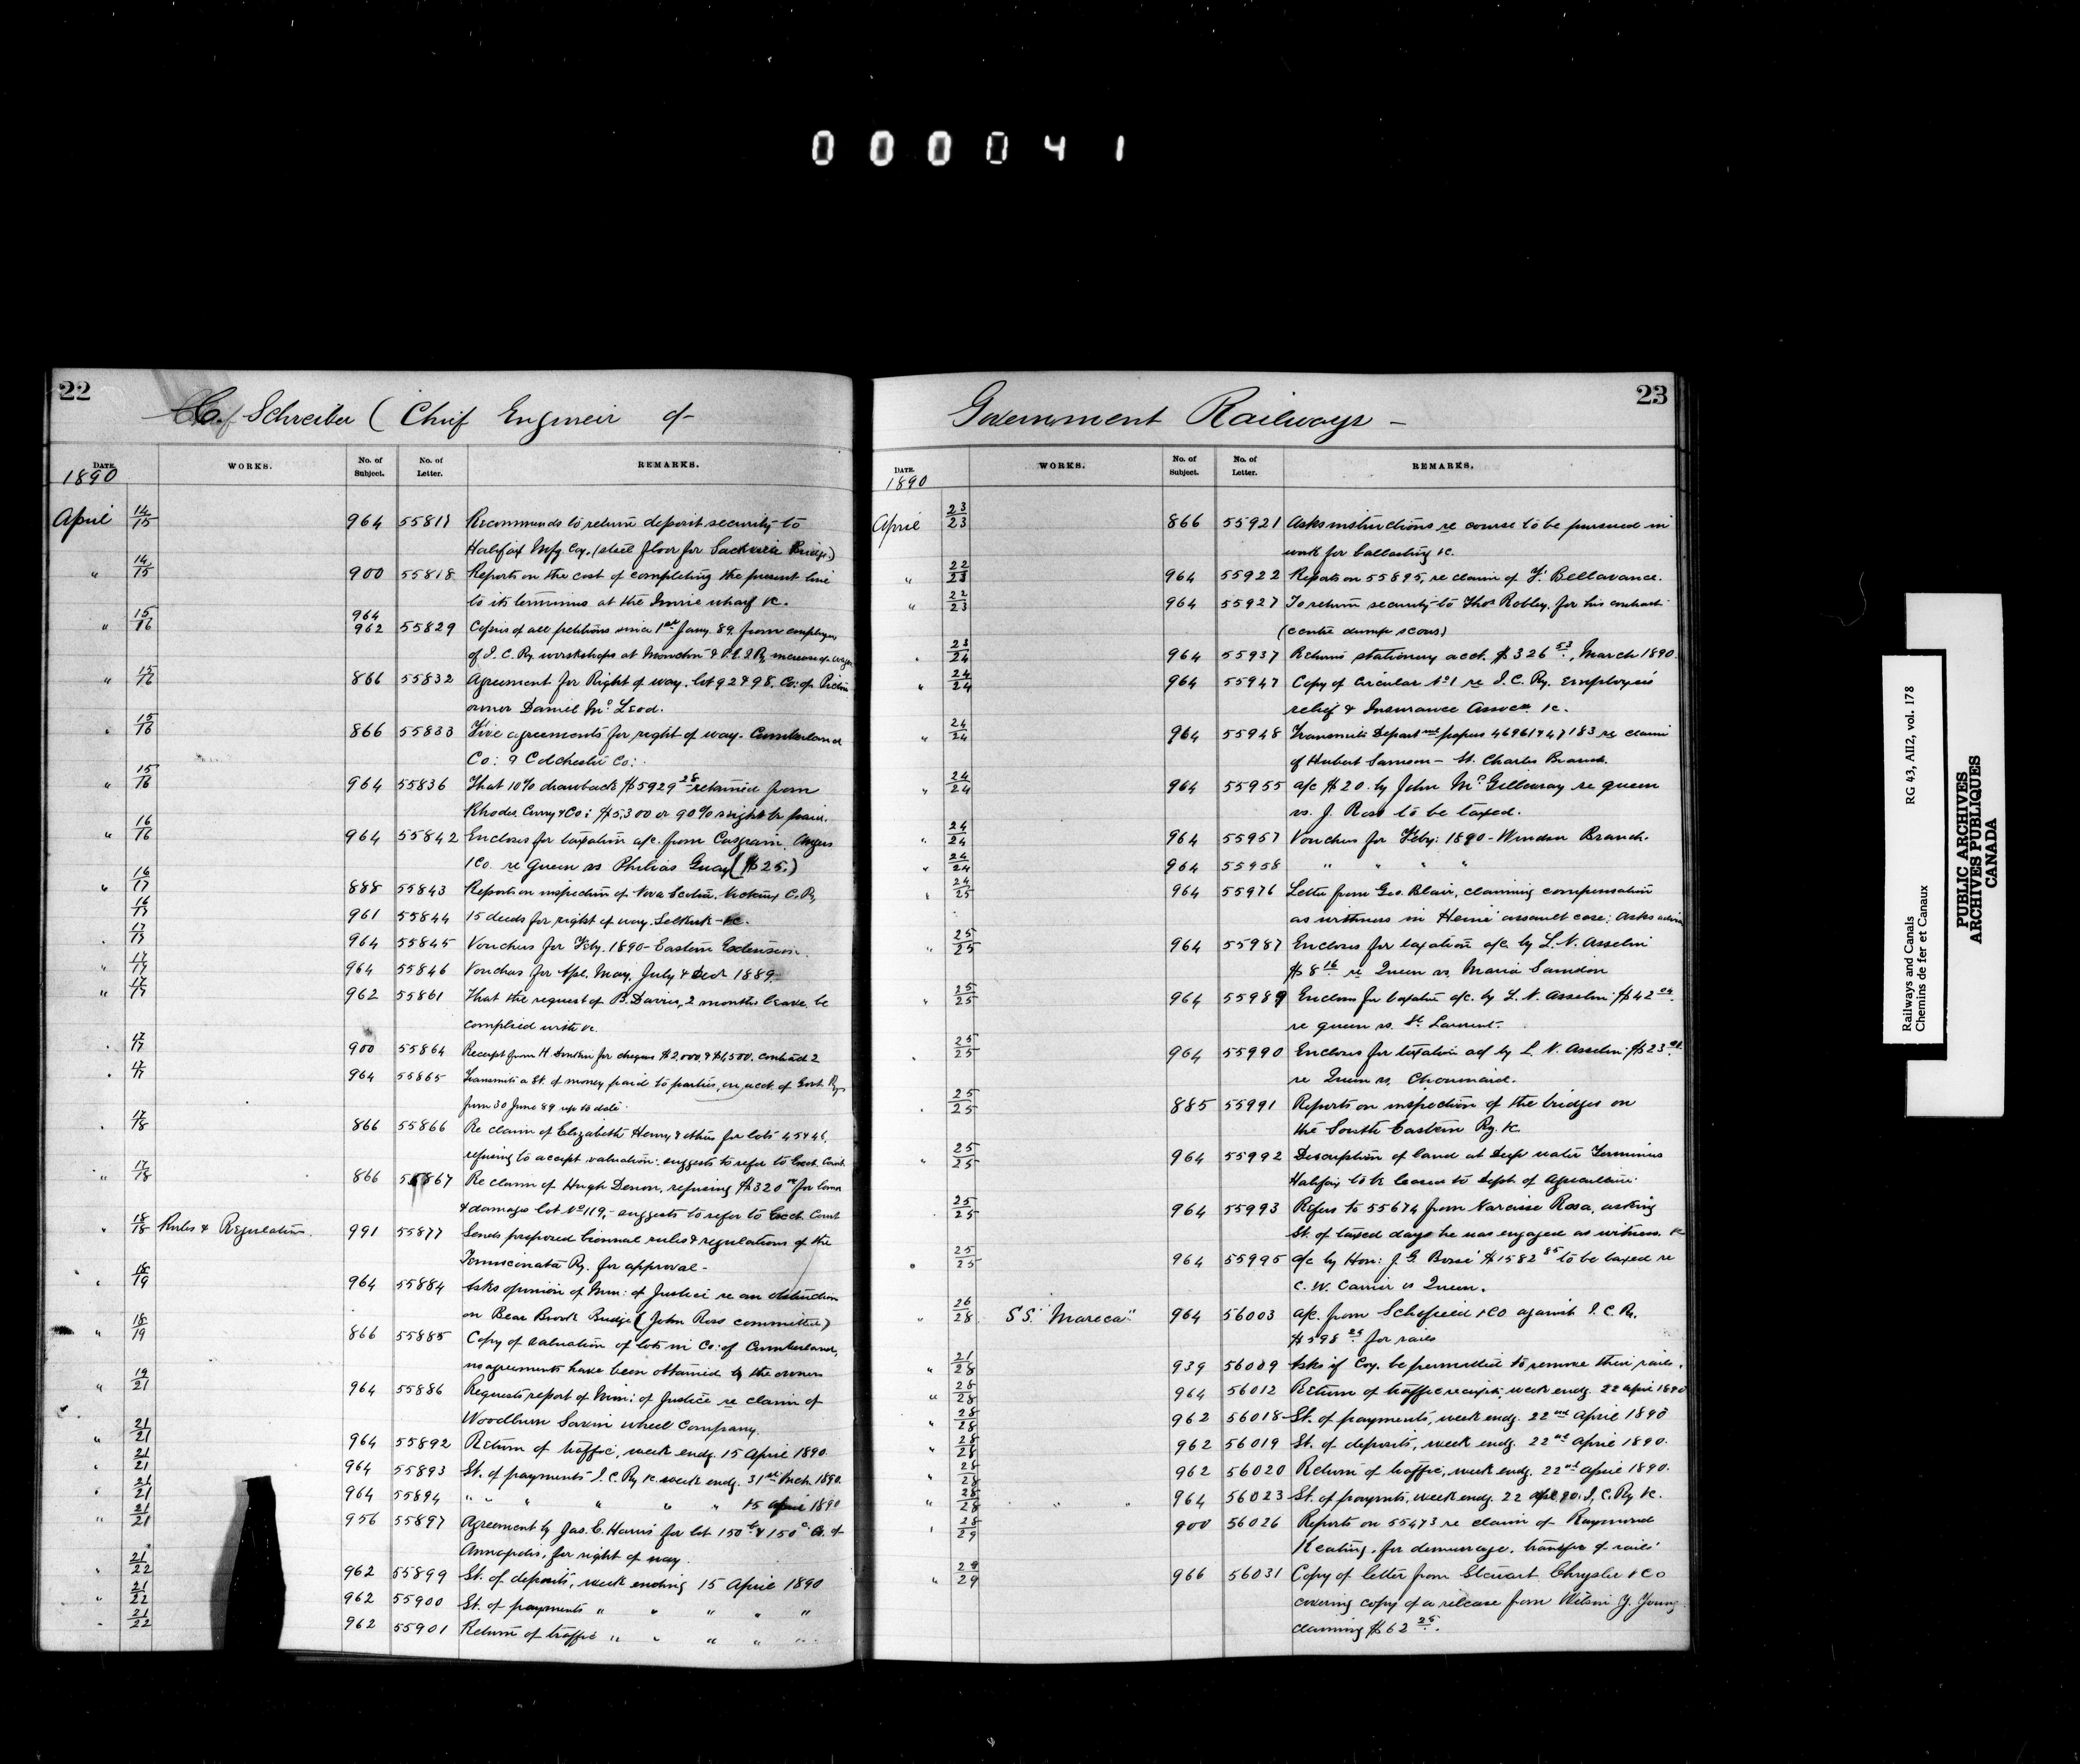 000041
22
C. Schreiber (Chief Engineer of
DATE. WORKS. No. of Subject. No. of Letter. REMARKS.
1890
April 14/15 964 55817 Recommends to return deposit security to
Halifax Mfg Coy. (steel floor for Sackville Bridge)
" 14/15 900 55818 Reports on the cost of completing the present line
to its terminus at the Imrie wharf &c.
964
" 15/16 962 55829 Copies of all petitions since 1st Jany. 89 from employees
of I. C. Ry. workshops at Moncton & P.E.I Ry, increase of wages
" 15/16 866 55832 Agreement for Right of way. lot 92 & 98. Co: of Pictou
owner Daniel McLeod.
" 15/16 866 55833 Five agreements for right of way. Cumberland
Co: & Colchester Co:
" 15/16 964 55836 That 10% drawback $5929 28 retained from
Rhodes Curry & Co: $5,300 or 90% might be paid.
" 16/16 964 55842 Encloses for taxation a/c. from Casgrain, Angers
& Co. re Queen vs Philias Guay ($25.)
" 16/17 888 55843 Reports on inspection of Nova Scotia. Nictaux C. Ry
16/17 961 55844 15 deeds for right of way. Selkirk - &c.
" 17/17 964 55845 Vouchers for Feby. 1890 - Eastern Extension.
" 17/17 964 55846 Vouchers for Apl. May, July & Decr 1889.
" 17/17 962 55861 That the request of B. Davies, 2 months leave be
complied with &c.
" 17/17 900 55864 Receipt from H. for cheques $2,000 & $4,500. contract 2
" 17/17 964 55865 Transmits a St. of money paid to parties, on acct. of Govt Rys
from 30 June 89 up to date.
" 17/18 866 55866 Re claim of Elizabeth Henry & others for lots 45 & 46,
refusing to accept valuation: suggests to refer to Exch. Court.
" 17/18 866 55867 Re claim of Hugh Denon, refusing $320 00 for land
& damage lot No 119, - suggests to refer to Exch. Court
" 18/18 Rules & Regulations. 991 55877 Sends proposed biennal rules & regulations of the
Temiscouata Ry. for approval -
" 18/19 964 55884 Asks opinion of Min: of Justice re an obstruction
on Bear Brook Bridge (John Ross committed)
" 18/19 866 55885 Copy of valuation of lots in Co: of Cumberland,
no agreements have been obtained by the owners
" 19/21 964 55886 Requests report of Min: of Justice re claim of
Woodburn Sarvin wheel Company.
" 21/21 964 55892 Return of traffic, week endg. 15 April 1890.
" 21/21 964 55893 St. of payments I. C. Ry &c. week endg. 31st Mch. 1890.
" 21/21 964 55894 " " " " " " 15 April 1890
" 21/21 956 55897 Agreement by Jas. E. Harris for lot 150 b & 150 c Co. of
Annapolis, for right of way.
" 21/22 962 55899 St. of deposits, week ending 15 April 1890
" 21/22 962 55900 St. of payments " " " " "
" 21/22 962 55901 Return of traffic " " " " "
23
Government Railways -
DATE. WORKS. No. of Subject. No. of Letter. REMARKS.
1890
April 23/23 866 55921 Asks instructions re course to be pursued in
work for ballasting &c.
" 22/23 964 55922 Reports on 55895, re claim of F. Bellavance.
" 22/23 964 55927 To return security to Thos Robley. for his contract
(centre dump scows)
" 23/24 964 55937 Returns stationery acct. $326 53, March 1890.
" 24/24 964 55947 Copy of Circular No 1 re I. C. Ry. Employees
relief & Insurance Assocn. &c.
" 24/24 964 55948 Transmits Departmtl papers 46961 & 47183 re claim
of Hubert Samson - St. Charles Branch.
" 24/24 964 55955 a/c $20. by John McGillivray re queen
vs. J. Ross to be taxed.
" 24/24 964 55957 Vouchers for Feby: 1890 - Windsor Branch.
" 24/24 964 55958 " " " "
" 24/25 964 55976 Letter from Geo. Blair, claiming compensation
as witness in Heine assault case; Asks advice
" 25/25 964 55987 Encloses for taxation a/c by L. N. Asselin
$8 16 re Queen vs. Maria Samdon
" 25/25 964 55989 Encloses for taxation a/c. by L. N. Asselin $42
re queen vs. St. Laurent.
" 25/25 964 55990 Encloses for taxation a/c by L. N. Asselin $23
re Queen vs. Chouinard.
" 25/25 885 55991 Reports on inspection of the bridges on
the South Eastern Ry. &c
" 25/25 964 55992 Description of land at Deep water Terminus
Halifax to be leased to Dept. of Agriculture.
25/25 964 55993 Refers to 55674 from Narcisse Rosa, asking
St. of taxed days he was engaged as witness. &c
" 25/25 964 55995 a/c by Hon: J. G. Bossé $1582 85 to be taxed re
C. W. Carrier vs Queen.
" 26/28 S.S. "Mareca" 964 56003 a/c. from Schofield & Co against I. C. Ry.
$598 for rails
" 21/28 939 56009 Asks if Coy. be permitted to remove their rails.
" 28/28 964 56012 Return of traffic receipts, week endg. 22 April 1890
" 28/28 962 56018 St. of payments, week endg. 22nd April 1890
" 28/28 962 56019 St. of deposits, week endg. 22nd April 1890.
" 28/28 962 56020 Return of traffic, week endg. 22nd April 1890.
" 28/28 " " 964 56023 St. of paymts, week endg. 22 Apl. 90: I. C. Ry &c.
" 28/29 900 56026 Reports on 55473 re claim of Raymond
Keating, for demurrage, transfer of rails
" 29/29 966 56031 Copy of letter from Stewart Chrysler & Co
covering copy of a release from Y. Young
claiming $62 25.
Railways and Canals RG 43, AII2, vol. 178
Chemins de fer et Canaux
PUBLIC ARCHIVES
ARCHIVES PUBLIQUES
CANADA